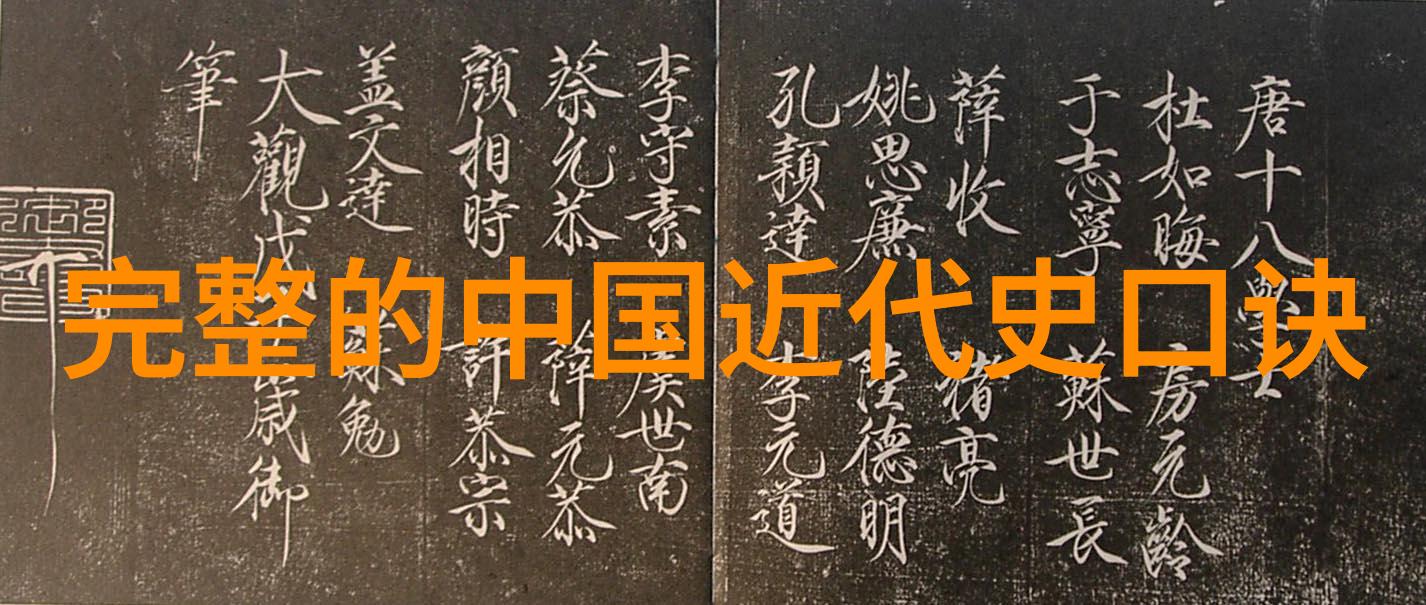 完整的中国近代史口诀
唐十八學士
杜如晦 房元齡
于志寧 蘇世長
薛收 褚亮
姚思廉 陸德明
孔穎達 李元道
李守素 虞世南
蔡元恭 薛元恭
顏相時 許恭宗
盖文達 蘇勉
大觀戊歲御
筆